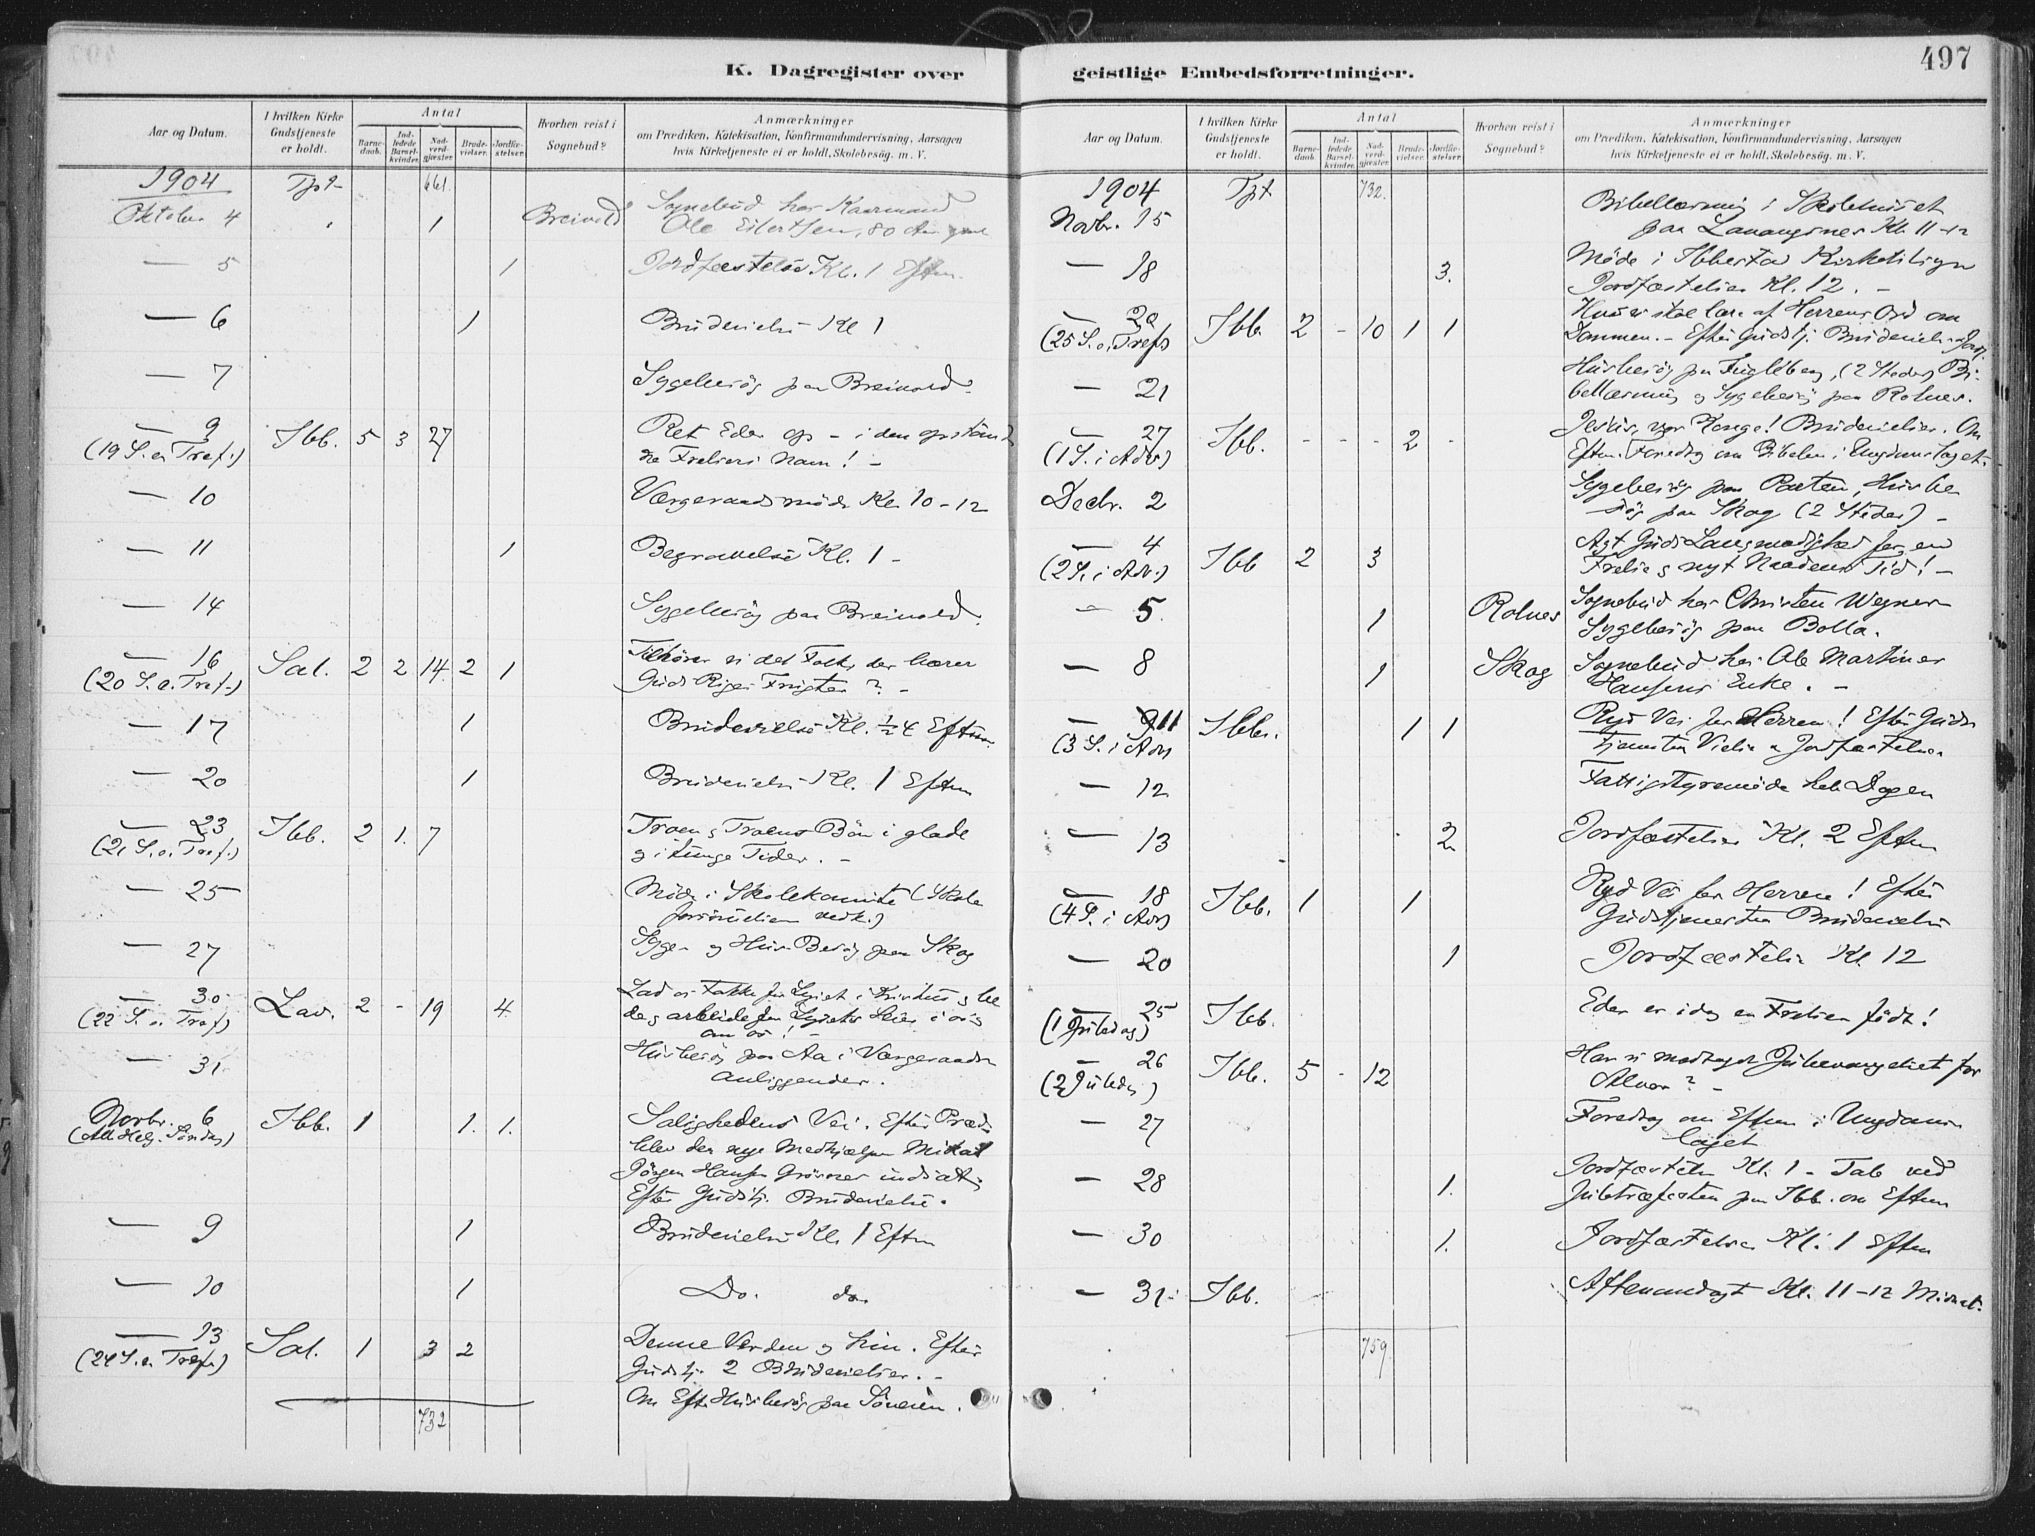 K. Dagregister over
Aar og Datum.
I hvilken Kirke Gudstjeneste er holdt.
Antal
Barne-daab.
Ind-ledede Barsel-kvinder.
Nad-verd-gjæster.
Brude-vielser.
Jordfæ-stelser.
Hvorhen reist i Sognebud?
Anmærkninger
om Prædiken, Katekisation, Konfirmandundervisning, Aarsagen
hvis Kirketjeneste ei er holdt, Skolebesøg. m. V.
1904 Tpt 661.
Oktober 4 1 Breivold Sognebud hos Kaarmand
Ole Eilertsen, 80 Aar
— 5 1 Jordfæstelse Kl. 1 Eftm.
— 6 1 Brudevielse Kl 1
— 7 Sygebesøg paa Breivold.
— 9 Ibb. 5 3 27 Ret Eder op – i den opstand
(19 S. e. Tref.) ne Frelsers Navn! –
— 10 Værgeraadsmøde Kl. 10-12
— 11 1 Begravelse Kl. 1 –
— 14 Sygebesøg paa Breivold.
— 16 Sal. 2 2 14. 2 1 Tilhører vi det Folk, der bærer
(20 S. e. Tref.) Guds Riges Frugter? –
— 17 1 Brudevielse Kl. ½4 Eftm.
— 20 1 Brudevielse Kl. 1 Eftm
— 23 Ibb. 2 1. 7 Troen og Troens Bøn i glade
(21 S. e. Tref.) og i tunge Tider. –
— 25 Møde i Skolekomite (Skole
vedk.)
— 27 Syge- og Hus-Besøg paa Skog
— 30 Lav. 2 - 19 4. Lad os takke for Lyset i Kristus og be
(22 S. e. Tref) de og arbeide for Lysets Seier i os og
om os!
— 31 Husbesøg paa Aa i Værgeraads
Anliggender.
Novbr. 6 Ibb. 1 1. 1. Salighedens Vei. Efter Præd.
(All Helg. Søndag) blev den nye Medhjælper Mikal
Jörgen Hansen indsat;
Efter Gudstj. Brudevielse.
— 9 1 Brudevielse Kl. 1 Eftm
— 10 1 Do. do.
— 13 Sal. 1 3 2 Denne Verden og hin. Efter
(24 S. e. Tref.) Gudstj. 2 Brudevielser. –
Om Eft. Husbesøg paa
732
geistlige Embedsforretninger.
497
Aar og Datum.
I hvilken Kirke Gudstjeneste er holdt.
Antal
Barne-daab.
Ind-ledede Barsel-kvinder.
Nad-verd-gjæster.
Brude-vielser.
Jordfæ-stelser.
Hvorhen reist i Sognebud?
Anmærkninger
om Prædiken, Katekisation, Konfirmandundervisning, Aarsagen
hvis Kirketjeneste ei er holdt, Skolebesøg. m. V.
1904 Tpt 732.
Novbr. 15 Bibellæsning i Skolehuset
paa Lavangsnes Kl. 11-12
— 18 3. Møde i Ibbestad Kirketilsyn
Jordfæstelser Kl. 12. –
— 20 Ibb. 2 - 10 1 1 Hvad vi skal lære af Herrens Ord om
(25 S. e. Tref) Dommen. – Efter Gudstj. Brudevielse Jordf.
— 21 Husbesøg paa Fugleberg, (2 Steder) Bi-
bellæsning og Sygebesøg paa Rolnes.
— 27 Ibb. - - - 2 - Jesus, vor Konge! Brudevielser. Om
(1 S. i Adv.) Eftm. Foredrag om Bibelen i Ungdomslaget.
Decbr. 2 Sygebesøg paa Husbe
søg paa Skog (2 Steder) –
— 4 Ibb 2 3 Agt Guds Langmodighed for en
(2 S. i Adv.) Frelse og nyt Naadens Tid! –
— 5. 1 Rolnes Sognebud hos Christen Wegner
Sygebesøg paa Bolla.
— 8 1 Skog Sognebud hos Ole Martinus
Hansens Enke. –
— 11 Ibb. 1 1 Ryd Vei for Herren! Efter Guds
(3 S. i Adv) tjenesten Vielse og Jordfæstelse
— 12 Fattigstyremøde hele Dagen
— 13 2 Jordfæstelser Kl. 2 Eftm
— 18 Ibb. 1 1 Ryd Vei for Herren! Efter
(4 S. i Adv) Gudstjenesten Brudevielse
— 20 1 Jordfæstelse Kl. 12
— 25 Ibb. Eder er idag en Frelser født!
(1 Juledag)
— 26 Ibb. 5 - 12 Har vi modtaget Juleevangeliet for
(2 Juledag) Alvor? –
— 27 Foredrag om Eftm i Ungdoms
laget
— 28 1. Jordfæstelse Kl. 1 – Tale ved
Juletræfesten paa Ibb. om Eftm
— 30 1. Jordfæstelse Kl. 1 Eftm
— 31 Ibb. Aftenandagt Kl. 11-12 Midnat.
759